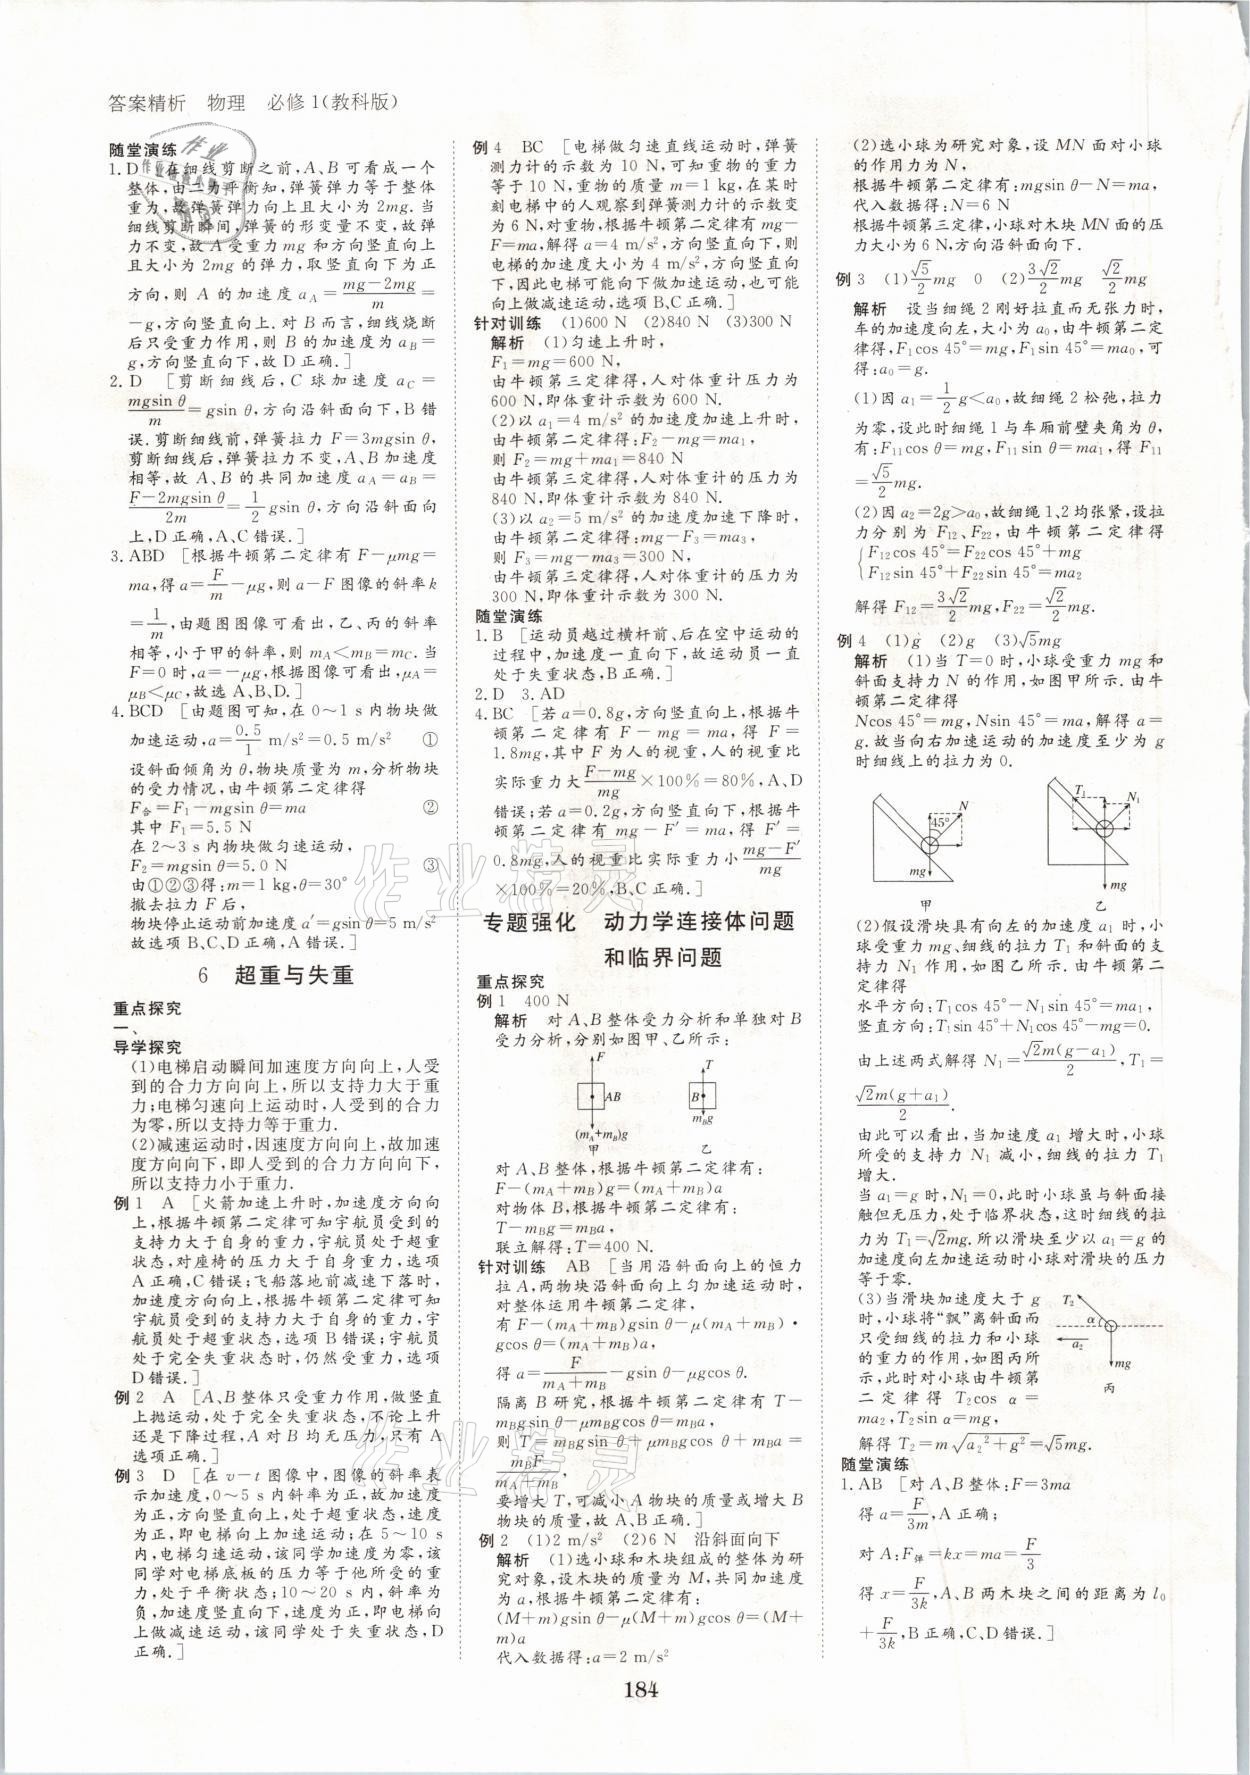 答案精析　物理　必修1(教科版)
随堂演练
1.D　[在细线剪断之前,A、B可看成一个
整体,由二力平衡知,弹簧弹力等于整体
重力,故弹簧弹力向上且大小为2mg.当
细线剪断瞬间,弹簧的形变量不变,故弹
力不变,故A受重力mg和方向竖直向上
且大小为2mg的弹力,取竖直向下为正
方向,则A的加速度aA=(mg-2mg)/m=
-g,方向竖直向上.对B而言,细线烧断
后只受重力作用,则B的加速度为aB=
g,方向竖直向下,故D正确.]
2.D　[剪断细线后,C球加速度aC=
mgsin θ/m=gsin θ,方向沿斜面向下,B错
误.剪断细线前,弹簧拉力F=3mgsin θ,
剪断细线后,弹簧拉力不变,A、B加速度
相等,故A、B的共同加速度aA=aB=
(F-2mgsin θ)/2m=1/2 gsin θ,方向沿斜面向
上,D正确,A、C错误.]
3.ABD　[根据牛顿第二定律有F-μmg=
ma,得a=F/m-μg,则a-F图像的斜率k
=1/m,由题图图像可看出,乙、丙的斜率
相等,小于甲的斜率,则mA<mB=mC.当
F=0时,a=-μg,根据图像可看出,μA=
μB<μC,故选A、B、D.]
4.BCD　[由题图可知,在0~1 s内物块做
加速运动,a=0.5/1 m/s²=0.5 m/s²　①
设斜面倾角为θ,物块质量为m,分析物块
的受力情况,由牛顿第二定律得
F合=F1-mgsin θ=ma　②
其中F1=5.5 N
在2~3 s内物块做匀速运动,
F2=mgsin θ=5.0 N　③
由①②③得:m=1 kg,θ=30°
撤去拉力F后,
物块停止运动前加速度a′=gsin θ=5 m/s²
故选项B、C、D正确,A错误.]
6　超重与失重
重点探究
一、
导学探究
(1)电梯启动瞬间加速度方向向上,人受
到的合力方向向上,所以支持力大于重
力;电梯匀速向上运动时,人受到的合力
为零,所以支持力等于重力.
(2)减速运动时,因速度方向向上,故加速
度方向向下,即人受到的合力方向向下,
所以支持力小于重力.
例1　A　[火箭加速上升时,加速度方向向
上,根据牛顿第二定律可知宇航员受到的
支持力大于自身的重力,宇航员处于超重
状态,对座椅的压力大于自身重力,选项
A正确,C错误;飞船落地前减速下落时,
加速度方向向上,根据牛顿第二定律可知
宇航员受到的支持力大于自身的重力,宇
航员处于超重状态,选项B错误;宇航员
处于完全失重状态时,仍然受重力,选项
D错误.]
例2　A　[A、B整体只受重力作用,做竖直
上抛运动,处于完全失重状态,不论上升
还是下降过程,A对B均无压力,只有A
选项正确.]
例3　D　[在v-t图像中,图像的斜率表
示加速度,0~5 s内斜率为正,故加速度
为正,方向竖直向上,处于超重状态,速度
为正,即电梯向上加速运动;在5~10 s
内,电梯匀速运动,该同学加速度为零,该
同学对电梯底板的压力等于他所受的重
力,处于平衡状态;10~20 s内,斜率为
负,加速度方向竖直向下,速度为正,即电梯向
上做减速运动,该同学处于失重状态,D
正确.]
例4　BC　[电梯做匀速直线运动时,弹簧
测力计的示数为10 N,可知重物的重力
等于10 N,重物的质量m=1 kg,在某时
刻电梯中的人观察到弹簧测力计的示数变
为6 N,对重物,根据牛顿第二定律有mg-
F=ma,解得a=4 m/s²,方向竖直向下,则
电梯的加速度大小为4 m/s²,方向竖直
向下,因此电梯可能向下做加速运动,也可能
向上做减速运动,选项B、C正确.]
针对训练　(1)600 N　(2)840 N　(3)300 N
解析　(1)匀速上升时,
F1=mg=600 N,
由牛顿第三定律得,人对体重计压力为
600 N,即体重计示数为600 N.
(2)以a1=4 m/s²的加速度加速上升时,
由牛顿第二定律得:F2-mg=ma1,
则F2=mg+ma1=840 N
由牛顿第三定律得,人对体重计的压力为
840 N,即体重计示数为840 N.
(3)以a2=5 m/s²的加速度加速下降时,
由牛顿第二定律得:mg-F3=ma3,
则F3=mg-ma3=300 N,
由牛顿第三定律得,人对体重计的压力为
300 N,即体重计示数为300 N.
随堂演练
1.B　[运动员越过横杆前、后在空中运动的
过程中,加速度一直向下,故运动员一直
处于失重状态,B正确.]
2.D　3.AD
4.BC　[若a=0.8g,方向竖直向上,根据牛
顿第二定律有F-mg=ma,得F=
1.8mg,其中F为人的视重,人的视重比
实际重力大(F-mg)/mg×100%=80%,A、D
错误;若a=0.2g,方向竖直向下,根据牛
顿第二定律有mg-F′=ma,得F′=
0.8mg,人的视重比实际重力小(mg-F′)/mg
×100%=20%,B、C正确.]
专题强化　动力学连接体问题
和临界问题
重点探究
例1　400 N
解析　对A、B整体受力分析和单独对B
受力分析,分别如图甲、乙所示:
F　T
AB　B
(mA+mB)g　mBg
甲　乙
对A、B整体,根据牛顿第二定律有:
F-(mA+mB)g=(mA+mB)a
对物体B,根据牛顿第二定律有:
T-mBg=mBa,
联立解得:T=400 N.
针对训练　AB　[当用沿斜面向上的恒力
拉A,两物块沿斜面向上匀加速运动时,
对整体运用牛顿第二定律,
有F-(mA+mB)gsin θ-μ(mA+mB)·
gcos θ=(mA+mB)a,
得a=F/(mA+mB)-gsin θ-μgcos θ.
隔离B研究,根据牛顿第二定律有T-
mBgsin θ-μmBgcos θ=mBa,
则T=mBgsin θ+μmBgcos θ+mBa=
mBF/(mA+mB)
要增大T,可减小A物块的质量或增大B
物块的质量,故A、B正确.]
例2　(1)2 m/s²　(2)6 N　沿斜面向下
解析　(1)选小球和木块组成的整体为研
究对象,设木块的质量为M,共同加速度
为a,根据牛顿第二定律有:
(M+m)gsin θ-μ(M+m)gcos θ=(M+
m)a
代入数据得:a=2 m/s²
(2)选小球为研究对象,设MN面对小球
的作用力为N,
根据牛顿第二定律有:mgsin θ-N=ma,
代入数据得:N=6 N
根据牛顿第三定律,小球对木块MN面的压
力大小为6 N,方向沿斜面向下.
例3　(1)√5/2 mg　0　(2)3√2/2 mg　√2/2 mg
解析　设当细绳2刚好拉直而无张力时,
车的加速度向左,大小为a0,由牛顿第二定
律得,F1cos 45°=mg,F1sin 45°=ma0,可
得:a0=g.
(1)因a1=1/2 g<a0,故细绳2松弛,拉力
为零,设此时细绳1与车厢前壁夹角为θ,
有:F11cos θ=mg,F11sin θ=ma1,得F11
=√5/2 mg.
(2)因a2=2g>a0,故细绳1、2均张紧,设拉
力分别为F12、F22,由牛顿第二定律得
{F12cos 45°=F22cos 45°+mg
F12sin 45°+F22sin 45°=ma2
解得F12=3√2/2 mg,F22=√2/2 mg.
例4　(1)g　(2)g　(3)√5mg
解析　(1)当T=0时,小球受重力mg和
斜面支持力N的作用,如图甲所示.由牛
顿第二定律得
Ncos 45°=mg,Nsin 45°=ma,解得a=
g.故当向右加速运动的加速度至少为g
时细线上的拉力为0.
N　45°　mg　甲
T1　N1　mg　乙
(2)假设滑块具有向左的加速度a1时,小
球受重力mg、细线的拉力T1和斜面的支
持力N1作用,如图乙所示.由牛顿第二
定律得
水平方向:T1cos 45°-N1sin 45°=ma1,
竖直方向:T1sin 45°+N1cos 45°-mg=0.
由上述两式解得N1=√2m(g-a1)/2,T1=
√2m(g+a1)/2.
由此可以看出,当加速度a1增大时,小球
所受的支持力N1减小,细线的拉力T1
增大.
当a1=g时,N1=0,此时小球虽与斜面接
触但无压力,处于临界状态,这时细线的拉
力为T1=√2mg.所以滑块至少以a1=g的
加速度向左加速运动时小球对滑块的压力
等于零.
(3)当滑块加速度大于g
时,小球将“飘”离斜面而
只受细线的拉力和小球
的重力的作用,如图丙所
示,此时对小球由牛顿第
二定律得T2cos α=
ma2,T2sin α=mg,
解得T2=m√(a2²+g²)=√5mg.
T2　α　a2　mg　丙
随堂演练
1.AB　[对A、B整体:F=3ma
得a=F/3m,A正确;
对A:F弹=kx=ma=F/3
得x=F/3k,A、B两木块之间的距离为l0
+F/3k,B正确,C、D错误.]
184
作业精灵
作业精灵